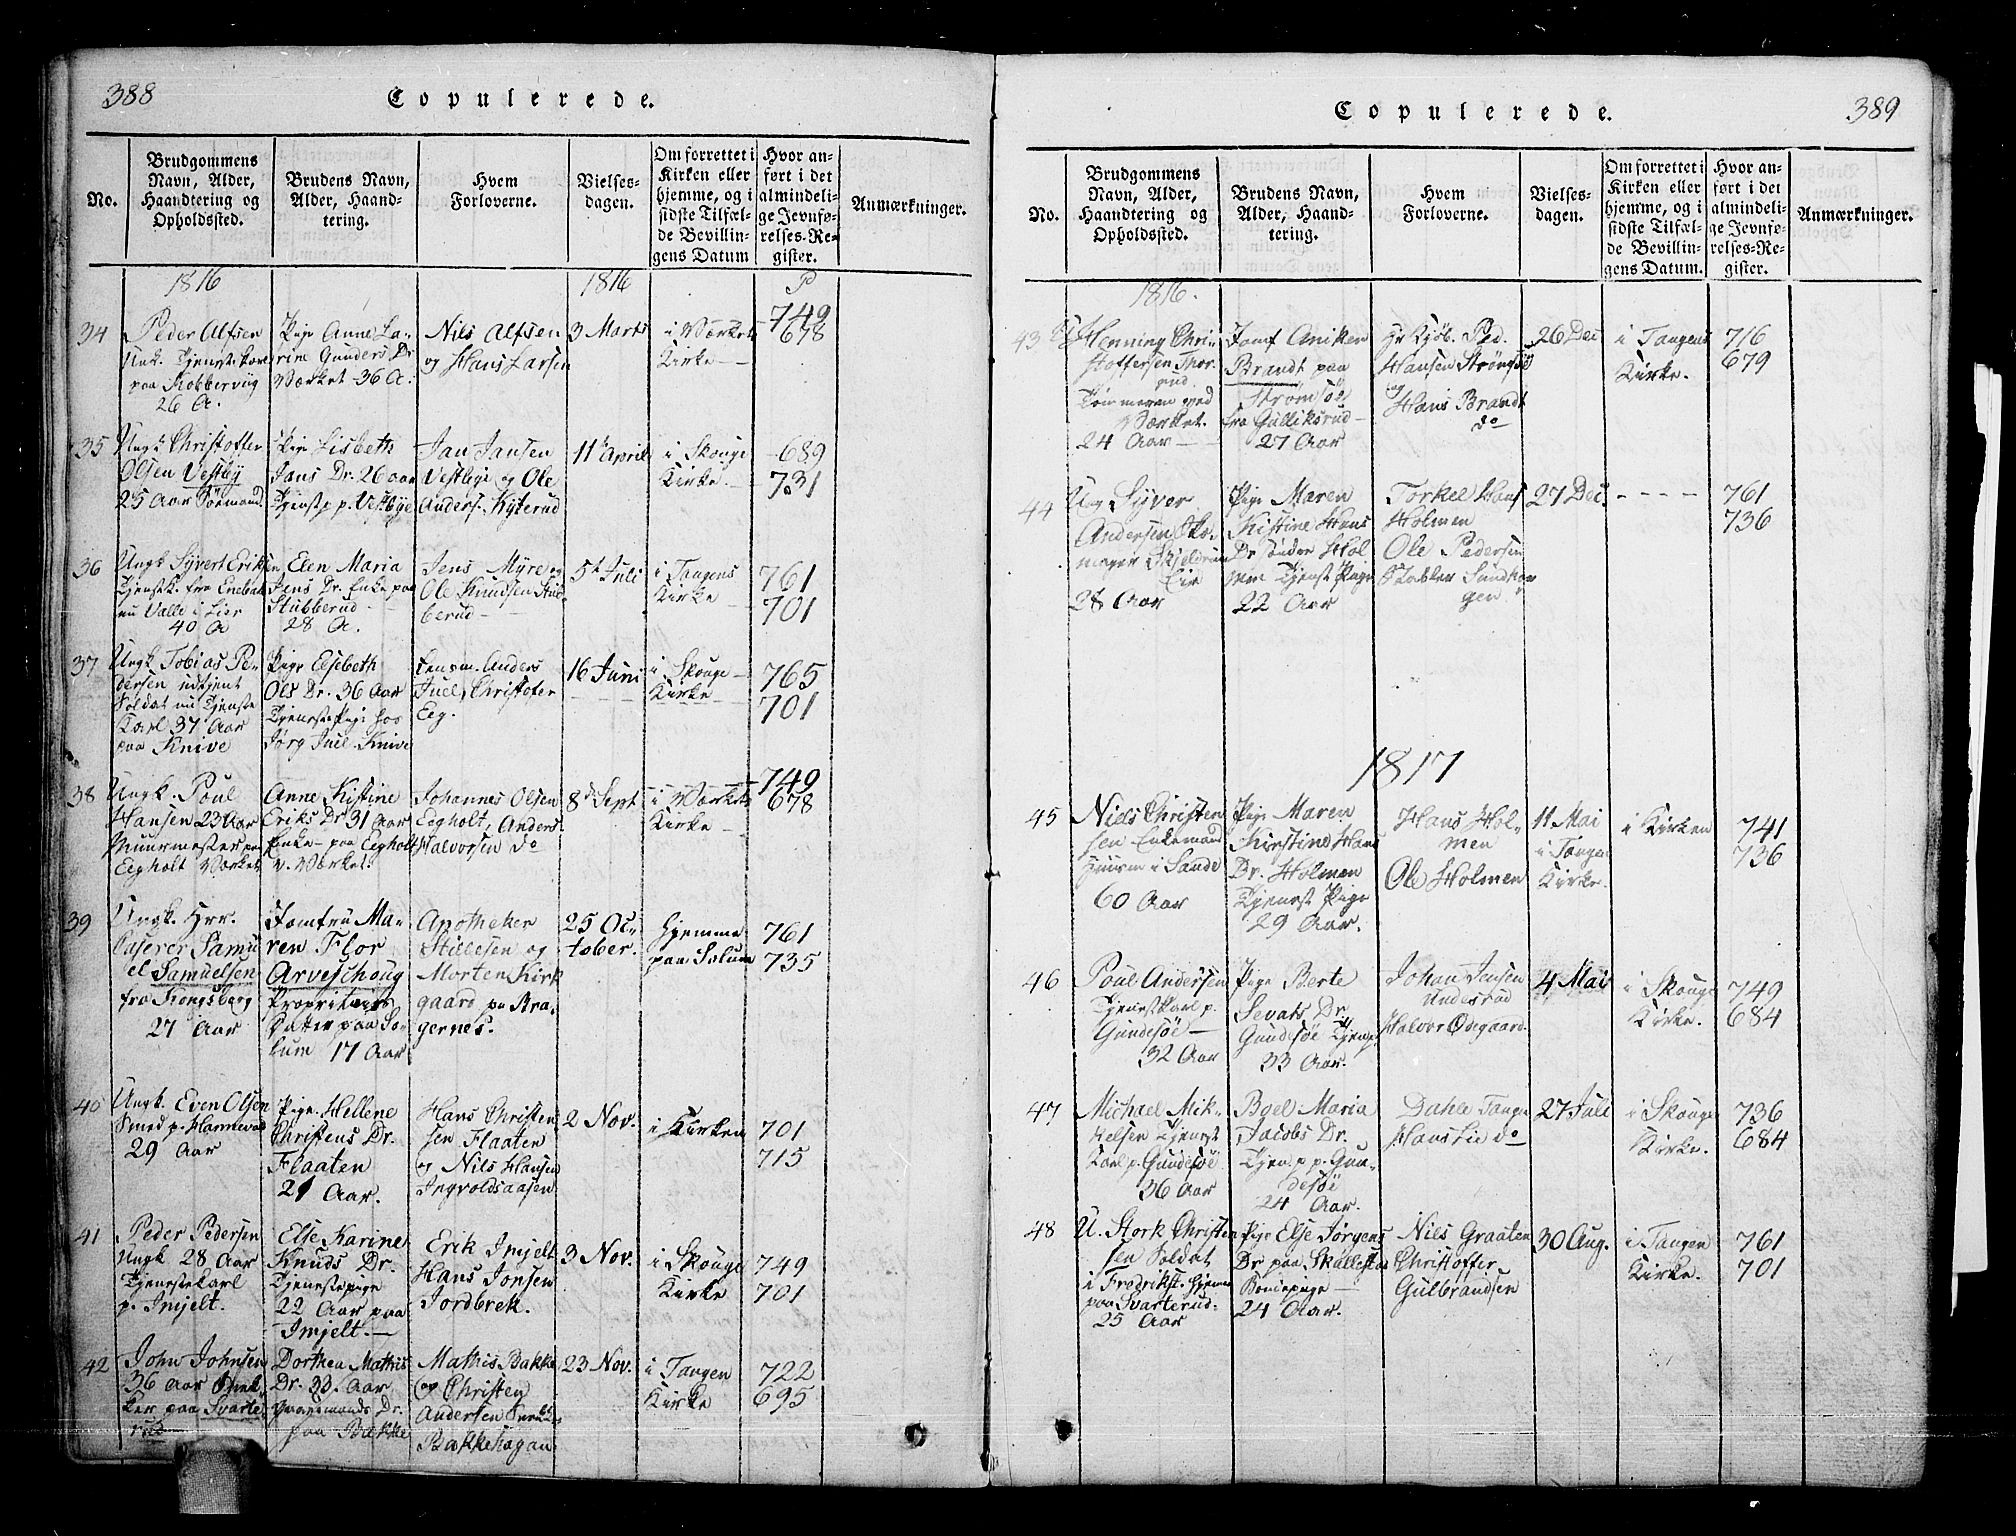 388
Copulerede.
No.
Brudgommens
Navn, Alder,
Haandtering og
Opholdssted.
Brudens Navn,
Alder, Haand-
tering.
Hvem
Forloverne.
Vielses-
dagen.
Om forrettet i
Kirken eller
hjemme, og i
sidste Tilfæl-
de Bevillin-
gens Datum
Hvor an-
ført i det
almindeli-
ge Jevnfø-
relses-Re-
gister.
Anmærkninger.
1816
1816
P
34
Peder Alfsen
Ungk. Tjenestekarl
paa Kobbervig
26 A.
Pige Anne La-
rine Gunders Dr
Værket 36 A.
Nils Alfsen
og Hans Larsen
3 Marts
i Værkets
Kirke
749
678
35
Ungk Christoffer
Olsen Vestby
25 Aar Sømand
Pige Lisbeth
Jans Dr. 26 aar
Tjenestp p. Vestbye
Jan Jansen
Vestbye og Ole
Anders. Kjterud
11 April
i Skouge
Kirke
689
731
36
Ungk Syvert Eriksen
Tjenestk. fra Enebak
nu Valle i Lier
40 A
Elen Maria
Jens Dr. Enke paa
Stubberud
28 A.
Jens Myre og
Ole Knudsen Stub-
berud
5t Juli
i Tangens
Kirke
761
701
37
Ungk Tobias Pe-
dersen udtjent
Soldat nu Tjeneste
Karl 37 Aar
paa Knive
Pige Elsebeth
Ols Dr. 36 Aar
Tjeneste Pige hos
Jørg Juel Knive
Lensm. Anders
Juel, Christofer
Eeg.
16 Juni
i Skouge
Kirke
765
701
38
Ungk. Poul
Hansen 23 Aar
Muurmester paa
Eegholt Værket
Anne Kistine
Eriks Dr 31 Aar
Enke paa Eegholt
v. Værket.
Johannes Olsen
Eegholt, Anders
Halvorsen do
8d Sept
i Værkets
Kirke
749
678
39
Ungk. Hrr.
Samu
el Samuelsen
fra Kongsberg
27 Aar
Jomfru Ma-
ren Flor
Arveschoug
Proprietairs
Datter paa So-
lum 17 Aar
Apotheker
Stillesen og
Morten Kirk
gaard paa Bra-
gernes.
25 Oc-
tober.
hjemme
paa Solum
761
735
40
Ungk. Even Olsen
Smed p. Hannevold
29 Aar
Pige. Hellene
Christens Dr.
Flaaten
21 Aar.
Hans Christen
sen Flaaten
og Nils Hansen
Ingvoldsaasen
2 Nov.
i Kirken
701
715
41
Peder Pedersen
Ungk 28 Aar
Tjenestekarl
p. Imjelt.
Else Karine
Knuds Dr.
Tjenestepige
22 Aar paa
Imjelt.
Erik Imjelt
Hans Jonsen
Jordbrek.
3 Nov.
i Skouge
Kirke
749
701
42
John Johnsen
36 aar
ker paa Svarte-
rud
Dorthea Mathis
Dr. 33. Aar
Dr.
paa Bakke
Mathis Bakke
og Christen
Andersen
Bakkehagan
23 Nov.
i Tangen
Kirke
722
695
389
Copulerede.
No.
Brudgommens
Navn, Alder,
Haandtering og
Opholdssted.
Brudens Navn,
Alder, Haand-
tering.
Hvem
Forloverne.
Vielses-
dagen.
Om forrettet i
Kirken eller
hjemme, og i
sidste Tilfæl-
de Bevillin-
gens Datum.
Hvor an-
ført i det
almindeli-
ge Jevnfø-
relses-Re-
gister.
Anmærkninger.
1816.
43
Henning Chri-
stoffersen Thor
rud
Tømmermand ved
Værket.
24 Aar
Jomf Aniken
Brandt paa
Strømsøe
fra Gulliksrud
27 Aar
Hr Kjøb. Ped.
Hansen Strømsøe
og
Hans Brandt
do
26 Dec
i Tangens
Kirke.
716
679
44
Ung Syver
Andersen Sko-
mager Skjeldrum
Lier
28 Aar
Pige Maren
Kistine Hans
Dr søndre Hol
men Tjenest Pige
22 Aar
Torkel Hans
Holmen
Ole Pedersen
Stabler Sundhau
gen
27 Dec.
- - - -
761
736
1817
45
Niels Christen
sen Enkemand
Huusm i Sande
60 Aar
Pige Maren
Kirstine Hans
Dr. Holmen
Tjenest Pige
29 Aar.
Hans Hol-
men
Ole Holmen
11 Mai
i Tangen
Kirke.
i Kirken
741
736
46
Poul Andersen
Tjenestkarl p.
Gundesøe
32 Aar
Pige Berte
Sevats Dr.
Gundesøe Tjenp.
33 Aar.
Johan Jensen
Undesrud
Halvor Ødegaard.
4 Mai
i Skouge
Kirke.
749
684
47
Michael Mik-
kelsen Tjenest
Karl p. Gundesøe
36 Aar
Boel Maria
Jacobs Dr.
Tjenp p. Gun-
desøe
24 Aar.
Dahle Tange
Hans Lie do
27 Juli
i Skouge
Kirke.
736
684
48
U. Stork Christen
sen Soldat
i Fredrikst. hjemme
paa Svarterud
25 Aar
Pige Else Jørgens
Dr paa Skallestad
Bondepige
24 Aar.
Nils Graaten
Christoffer
Gulbrandsen
30 Aug.
i Tangen
Kirke.
761
701